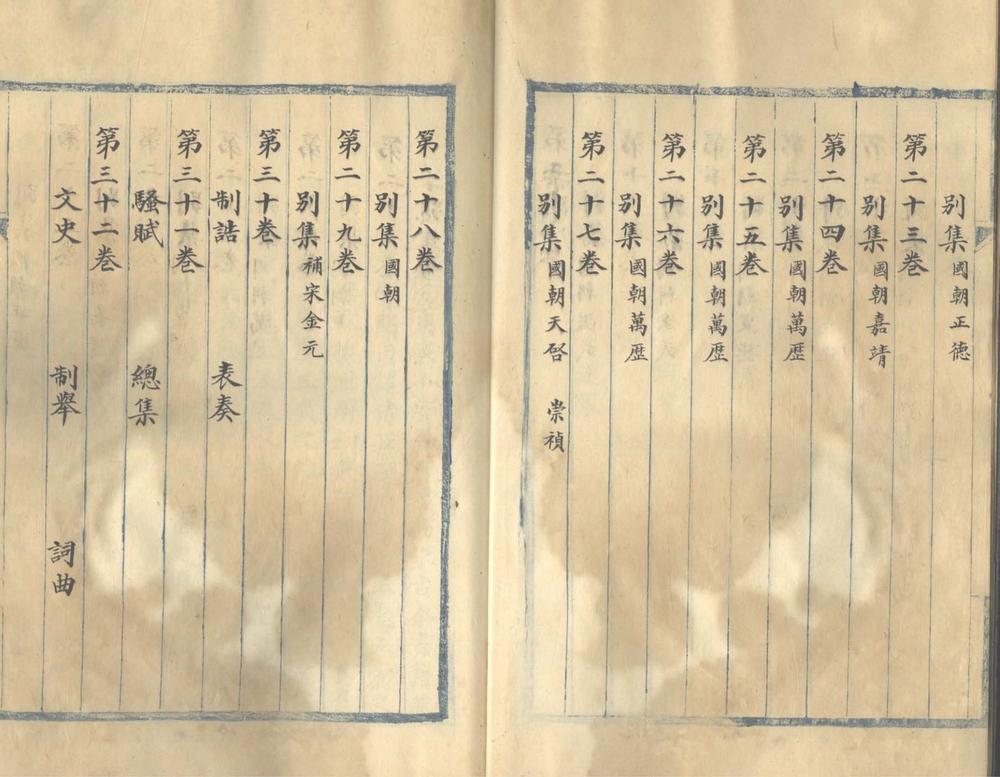 別集國朝正德
第二十三卷
別集國朝嘉靖
第二十四卷
別集國朝萬歷
第二十五卷
別集國朝萬歷
第二十六卷
別集國朝萬歷
第二十七卷
別集國朝天啓 崇禎
第二十八卷
別集國朝
第二十九卷
別集補宋金元
第三十卷
制誥 表奏
第三十一卷
騷賦 總集
第三十二卷
文史 制舉 詞曲